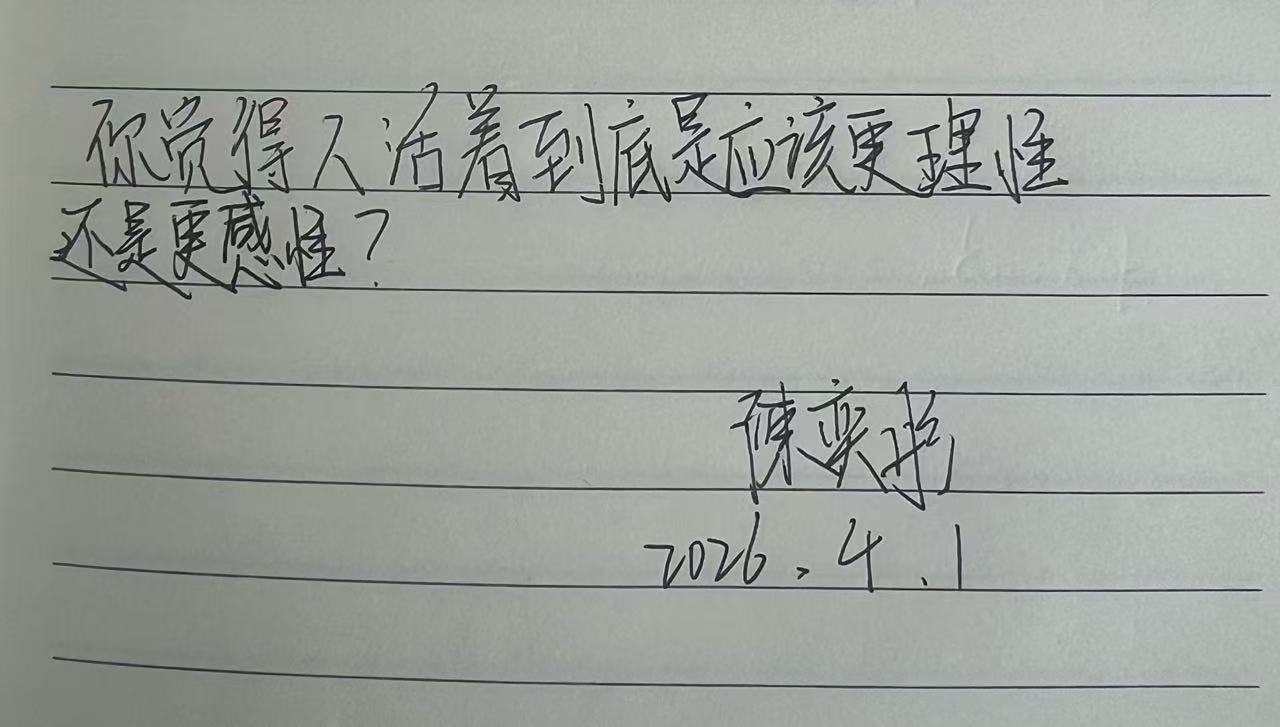 你觉得人活着到底是应该更理性
还是更感性？
陳奕彤
2026.4.1